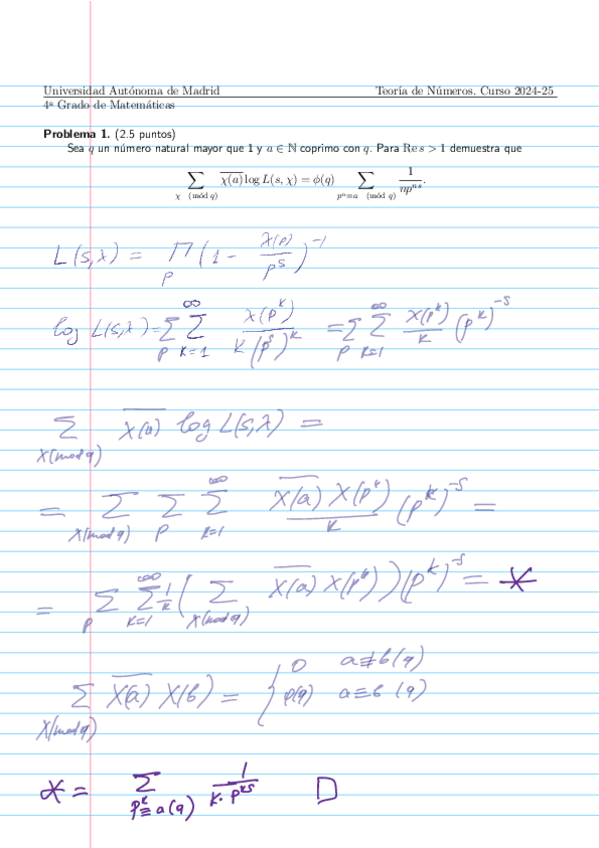 Universidad Autónoma de Madrid Teoría de Números. Curso 2024-25
4º Grado de Matemáticas
Problema 1. (2.5 puntos)
Sea q un número natural mayor que 1 y a ∈ ℕ coprimo con q. Para Re s > 1 demuestra que
∑_{χ (mód q)} \overline{χ(a)} log L(s, χ) = ϕ(q) ∑_{pⁿ≡a (mód q)} 1/(np^{ns}).
L(s,χ) = Π_p (1 - χ(p)/p^s)^{-1}
log L(s,χ) = ∑_p ∑_{k=1}^∞ χ(p^k)/(k(p^s)^k) = ∑_p ∑_{k=1}^∞ χ(p^k)/k (p^k)^{-s}
∑_{χ(mod q)} \overline{χ(a)} log L(s,χ) =
= ∑_{χ(mod q)} ∑_p ∑_{k=1}^∞ \overline{χ(a)} χ(p^k)/k (p^k)^{-s} =
= ∑_p ∑_{k=1}^∞ 1/k (∑_{χ(mod q)} \overline{χ(a)} χ(p^k)) (p^k)^{-s} = *
∑_{χ(mod q)} \overline{χ(a)} χ(b) = { 0 a≢b (q)
φ(q) a≡b (q)
* = ∑_{p^k≡a(q)} 1/(k·p^{ks}) □